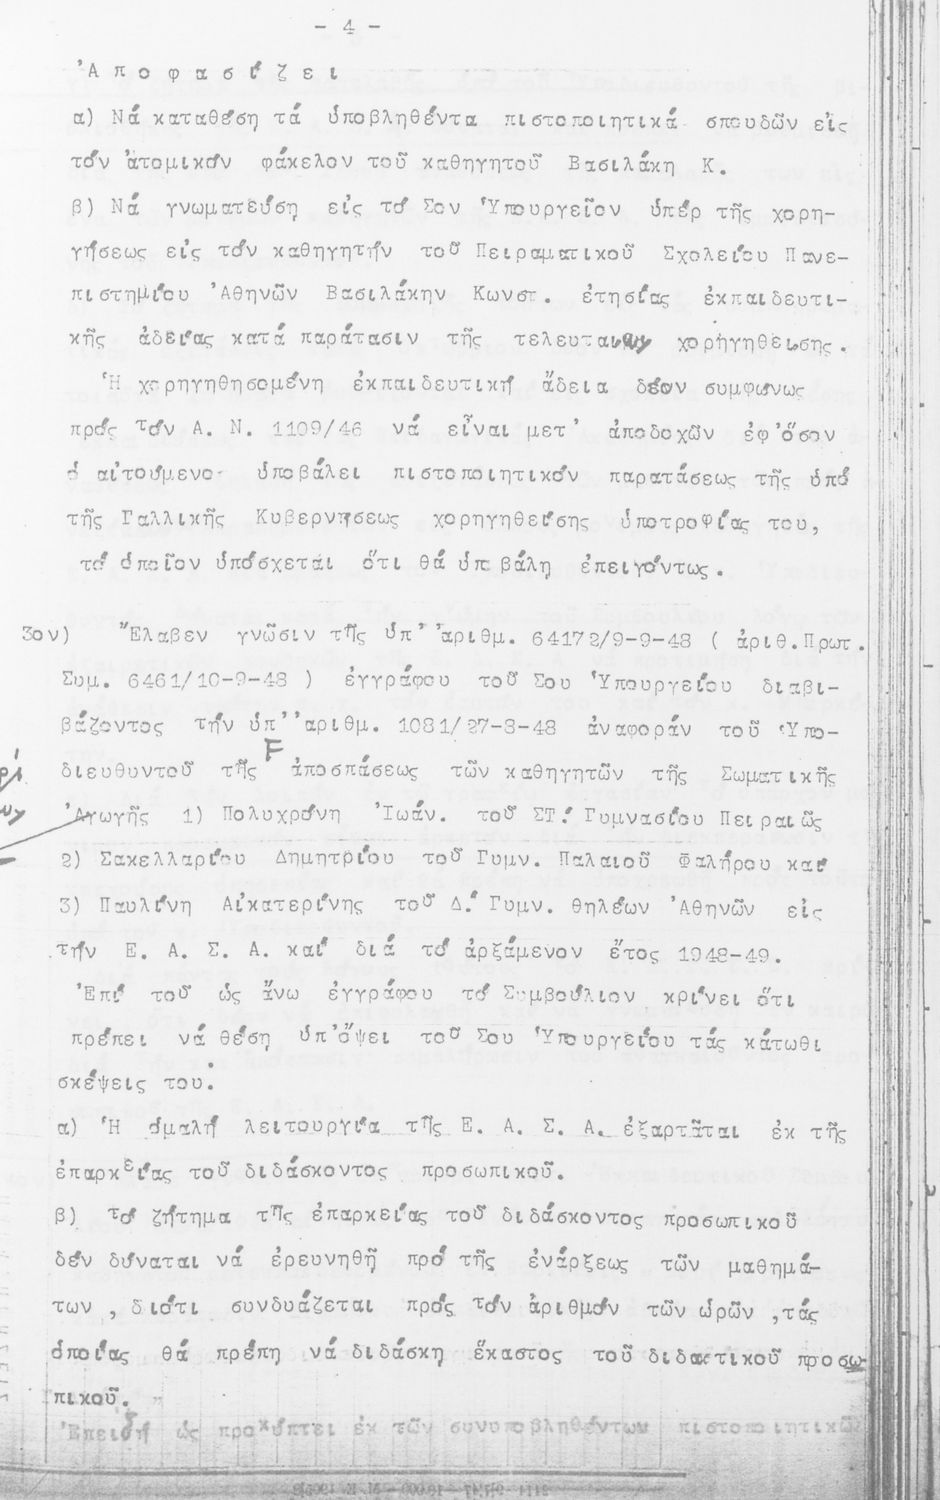 - 4 -
Ἀ π ο φ α σ ί ζ ε ι
α) Νά καταθέση τά ὑποβληθέντα πιστοποιητικά σπουδῶν εἰς
τόν ἀτομικόν φάκελον τοῦ καθηγητοῦ Βασιλάκη Κ.
β) Νά γνωματεύση εἰς τό Σον Ὑπουργεῖον ὑπέρ τῆς χορη-
γήσεως εἰς τόν καθηγητήν τοῦ Πειραματικοῦ Σχολείου Πανε-
πιστημίου Ἀθηνῶν Βασιλάκην Κωνστ. ἐτησίας ἐκπαιδευτι-
κῆς ἀδείας κατά παράτασιν τῆς χορηγηθείσης.
Ἡ χορηγηθησομένη ἐκπαιδευτική ἄδεια δέον συμφώνως
πρός τόν Α. Ν. 1109/46 νά εἶναι μετ' ἀποδοχῶν ἐφ'ὅσον
ὁ αἰτούμενο ὑποβάλει πιστοποιητικόν παρατάσεως τῆς ὑπό
τῆς Γαλλικῆς Κυβερνήσεως χορηγηθείσης ὑποτροφίας του,
τό ὁποῖον ὑπόσχεται ὅτι θά ὑποβάλη ἐπειγόντως.
3ον) Ἔλαβεν γνῶσιν τῆς ὑπ' ἀριθμ. 64172/9-9-48 ( ἀριθ.Πρωτ.
Συμ. 6461/10-9-48 ) ἐγγράφου τοῦ Σου Ὑπουργείου διαβι-
βάζοντος τήν ὑπ' ἀριθμ. 1081/27-8-48 ἀναφοράν τοῦ Ὑπο-
διευθυντοῦ τῆς ἀποσπάσεως τῶν καθηγητῶν τῆς Σωματικῆς
Ἀγωγῆς 1) Πολυχρόνη Ἰωάν. τοῦ ΣΤ! Γυμνασίου Πειραιῶς
2) Σακελλαρίου Δημητρίου τοῦ Γυμν. Παλαιοῦ Φαλήρου καί
3) Παυλίνη Αἰκατερίνης τοῦ Δ! Γυμν. θηλέων Ἀθηνῶν εἰς
τήν Ε. Α. Σ. Α. καί διά τό ἀρξάμενον ἔτος 1948-49.
Ἐπί τοῦ ὡς ἄνω ἐγγράφου τό Συμβούλιον κρίνει ὅτι
πρέπει νά θέση ὑπ'ὄψει τοῦ Σου Ὑπουργείου τάς κάτωθι
σκέψεις του:
α) Ἡ ὁμαλή λειτουργία τῆς Ε. Α. Σ. Α. ἐξαρτᾶται ἐκ τῆς
ἐπαρκείας τοῦ διδάσκοντος προσωπικοῦ.
β) τό ζήτημα τῆς ἐπαρκείας τοῦ διδάσκοντος προσωπικοῦ
δέν δύναται νά ἐρευνηθῆ πρό τῆς ἐνάρξεως τῶν μαθημά-
των , διότι συνδυάζεται πρός τόν ἀριθμόν τῶν ὡρῶν ,τάς
ὁποίας θά πρέπη νά διδάσκη ἕκαστος τοῦ διδακτικοῦ προσω-
πικοῦ. "
Ἐπειδή ὡς προκύπτει ἐκ τῶν συνυποβληθέντων πιστοποιητικῶν